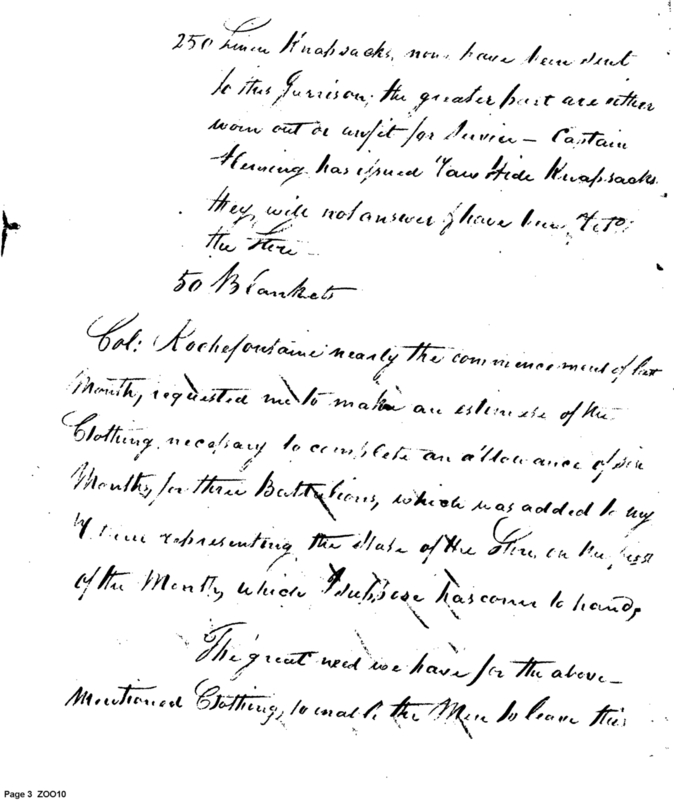 250 Linen Knapsacks, none have been sent
to this Garrison; the greater part are either
worn out or unfit for Service — Captain
Fleming has issued Raw Hide Knapsacks.
they will not answer & have been
the Store —
50 Blankets
Col: Rochefontaine nearly the commencement of last
Month, requested me to make an estimate of the
Clothing necessary to complete an allowance of six
Months, for three Battalions, which was added to my
Return representing the State of the Store on the first
of the Month, which I suppose has come to hand,
The great need we have for the above —
Mentioned Clothing, to enable the Men to leave this
Page 3 ZOO10